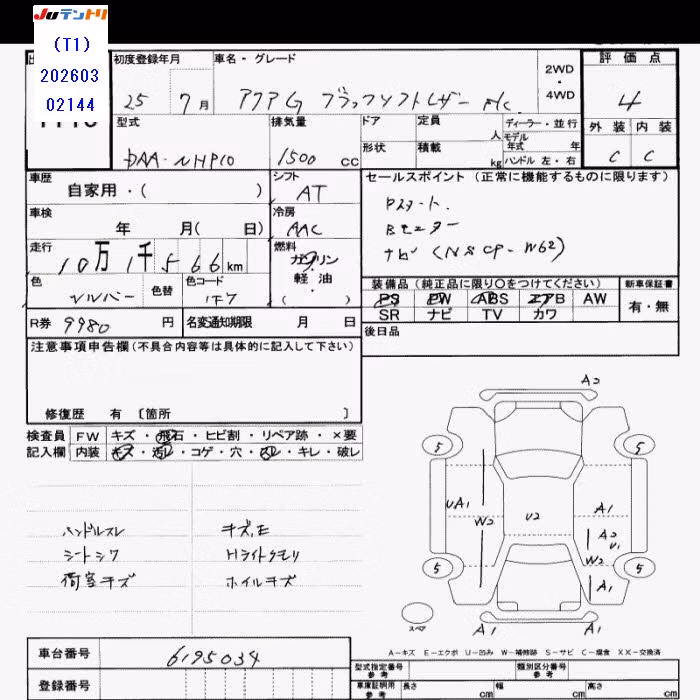 JUテントリ
(T1)
202603
02144
初度登録年月
車名・グレード
2WD・4WD
評価点
25 7月
アクアG ブラックソフトレザー
4
型式
排気量
ドア
定員
人
ディーラー・並行
モデル
年式 年
外装 内装
DAA-NHP10
1500 cc
形状
積載
kg
ハンドル 左・右
C C
車歴
自家用・( )
シフト
AT
セールスポイント (正常に機能するものに限ります)
Pスタート.
Bモニター
ナビ (NSCP-W62)
車検
年 月( 日)
冷房
AAC
走行
10万1千566km
燃料
ガソリン・軽油
( )
色
シルバー
色替
色コード
1F7
装備品 (純正品に限り○をつけてください)
新車保証書
PS PW ABS エアB AW
SR ナビ TV カワ
有・無
R券 9980 円
名変通知期限 月 日
後日品
注意事項申告欄(不具合内容等は具体的に記入して下さい)
修復歴 有 〔箇所 〕
検査員
記入欄
FW キズ・飛石・ヒビ割・リペア跡・×要
内装 キズ・汚レ・コゲ・穴・スレ・キレ・破レ
ハンドルスレ
シートシワ
荷室キズ
キズ,E
Hライトクモリ
ホイルキズ
A2
5 5
UA1
W2
U2
A1
A2
U1
W2
5 5
A1
スペア
A1 A1
A－キズ E－エクボ U－凹み W－補修跡 S－サビ C－腐食 XX－交換済
車台番号 6195034
登録番号
型式指定番号
参考
類別区分番号
参考
車庫証明用
参考
長さ cm 幅 cm 高さ cm